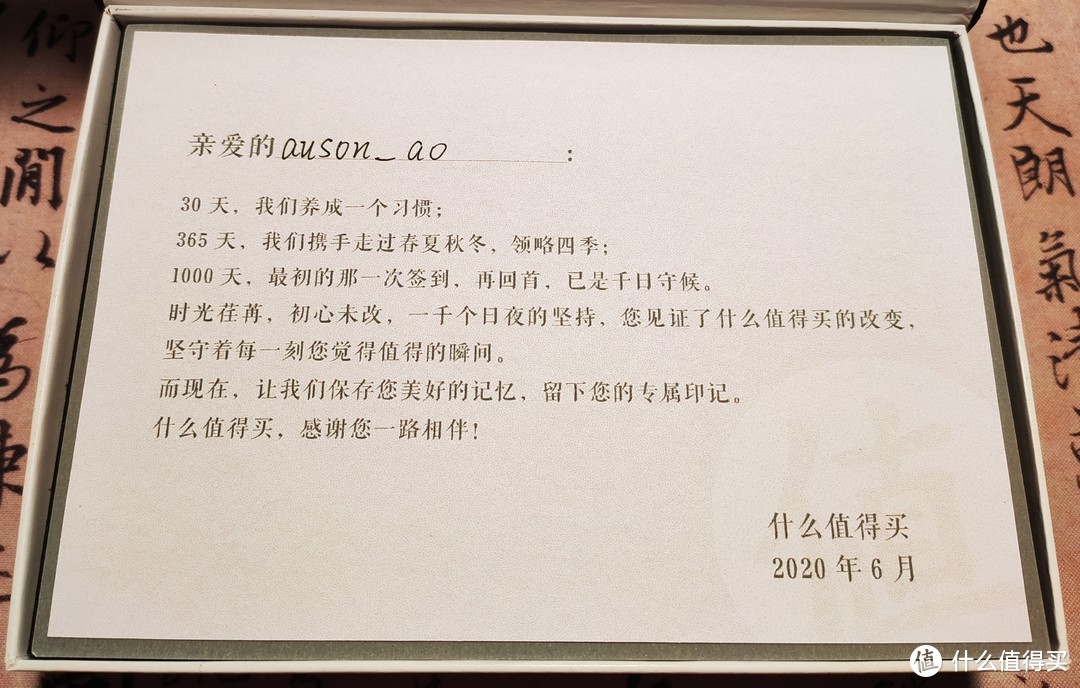 亲爱的auson_ao：
30 天，我们养成一个习惯；
365 天，我们携手走过春夏秋冬，领略四季；
1000 天，最初的那一次签到，再回首，已是千日守候。
时光荏苒，初心未改，一千个日夜的坚持，您见证了什么值得买的改变，
坚守着每一刻您觉得值得的瞬间。
而现在，让我们保存您美好的记忆，留下您的专属印记。
什么值得买，感谢您一路相伴！
什么值得买
2020 年 6 月
值
仰
之
閒
以
也
天
朗
氣
清
值 什么值得买